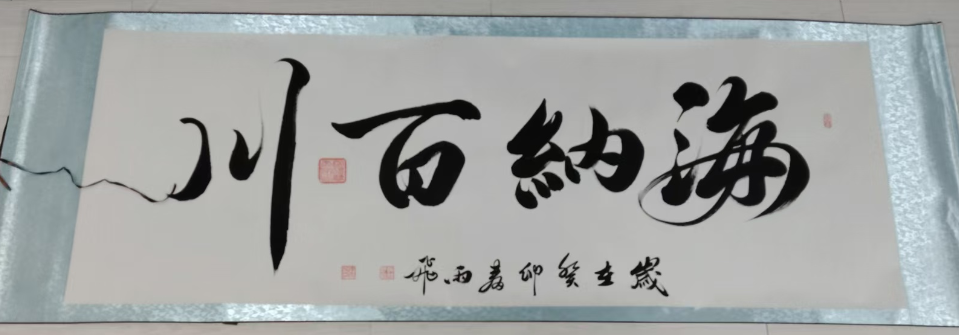 海納百川
歲在癸卯春雨飛